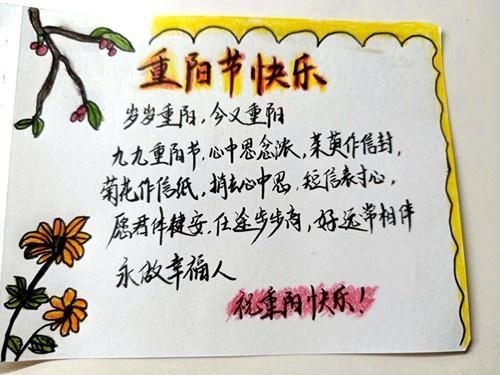 重阳节快乐
岁岁重阳，今又重阳
九九重阳节，心中思念浓，茱萸作信封，
菊花作信纸，捎去心中思，短信表寸心，
愿君体健安，仕途步步高，好运常相伴
永做幸福人
祝重阳快乐！